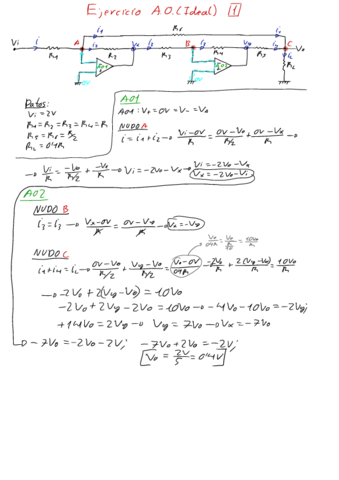 Ejercicio A.O.(Ideal) 1
Vi i R1 A i1 R5 i2 R2 Vx i3 R3 B R4 Vy C Vo
RL
0V 0V
Datos:
Vi=2V
R1=R2=R3=R4=R
RL=0'1R
AO1
AO1: V+=0V=V-=VA
NUDO A
i=i1+i2 → Vi-0V/R = 0V-Vo/R/2 + 0V-Vx/R →
→ Vi/R = -Vo/R/2 + -Vx/R → Vi=-2Vo-Vx → Vi=-2Vo-Vx
Vx=-2Vo-Vi
AO2
NUDO B
i3=i3 → Vx-0V/R = 0V-Vy/R → Vx=-Vy
NUDO C
i1+i4=iL → 0V-Vo/R/2 + Vy-Vo/R/2 = Vo-0V/0'1R → -2Vo/R + 2(Vy-Vo)/R = 10Vo/R
→ -2Vo+2(Vy-Vo)=10Vo
-2Vo+2Vy-2Vo=10Vo → -4Vo-10Vo=-2Vy
+14Vo=2Vy → Vy=7Vo → Vx=-7Vo
→ -7Vo=-2Vo-Vi -7Vo+2Vo=-Vi
Vo=2V/5=0'4V